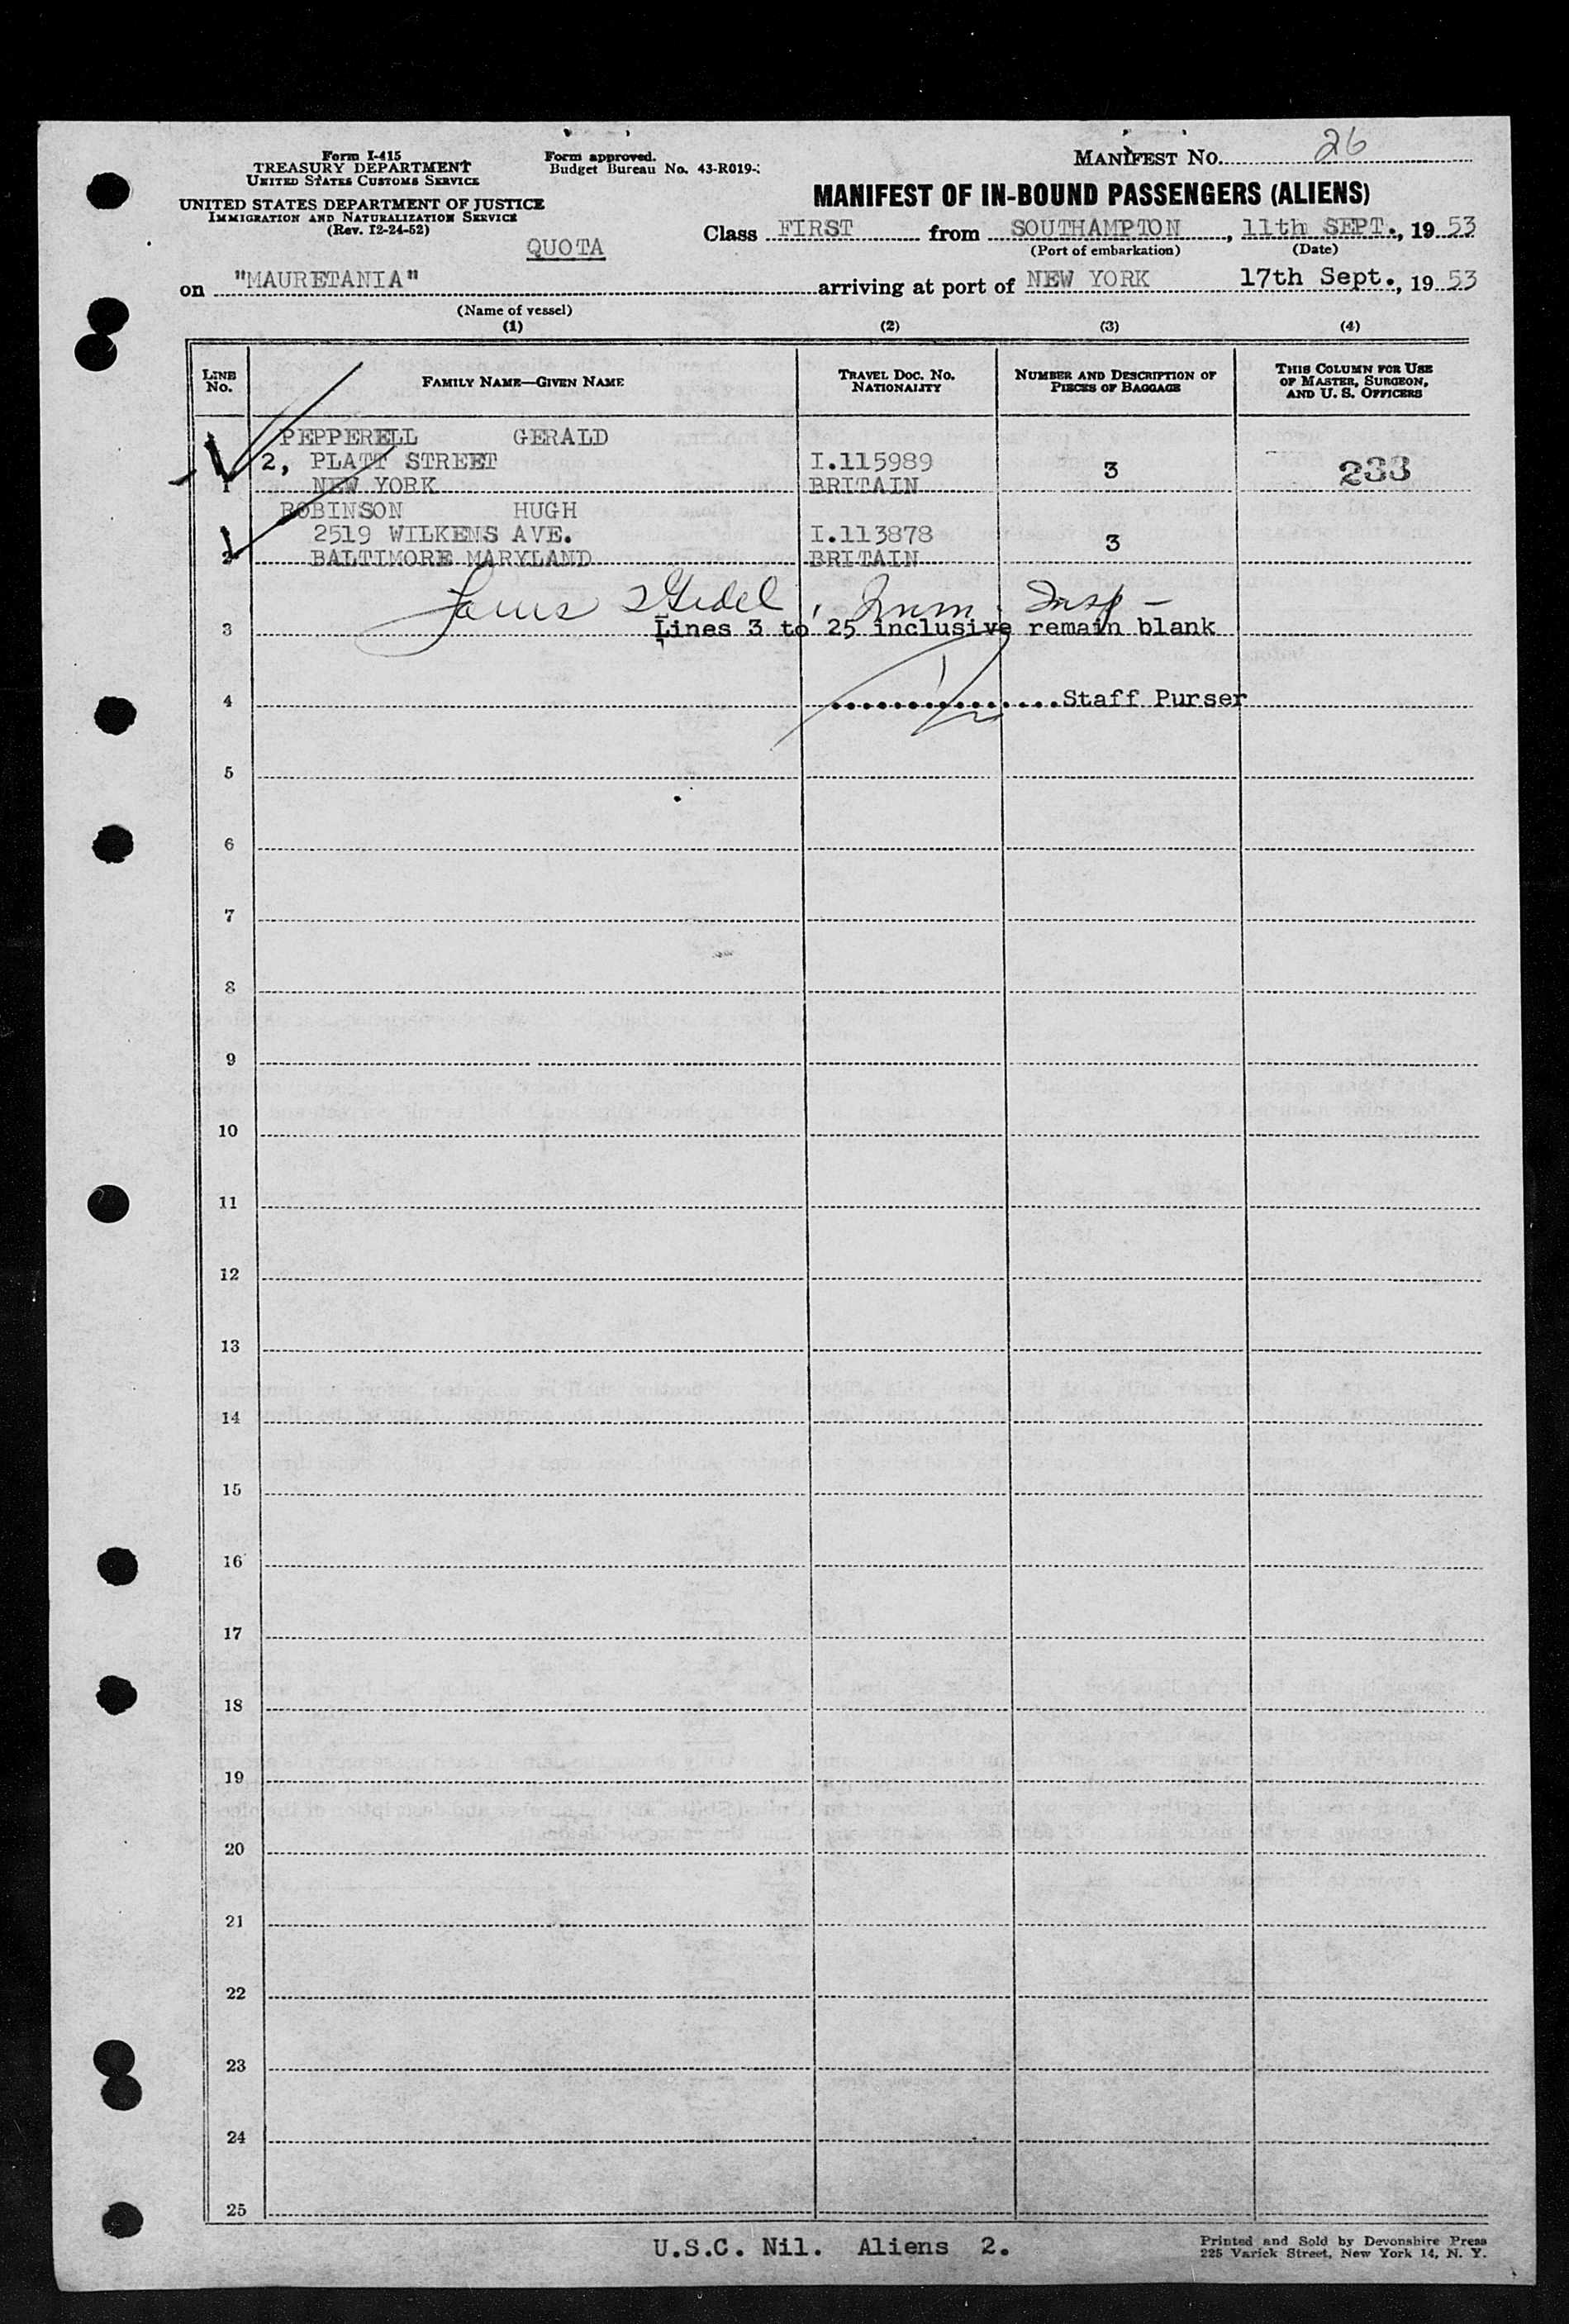 Form I-415
TREASURY DEPARTMENT
UNITED STATES CUSTOMS SERVICE
UNITED STATES DEPARTMENT OF JUSTICE
IMMIGRATION AND NATURALIZATION SERVICE
(Rev. 12-24-52)
Form approved.
Budget Bureau No. 43-R019-
MANIFEST NO. 26
MANIFEST OF IN-BOUND PASSENGERS (ALIENS)
QUOTA
Class FIRST from SOUTHAMPTON, 11th SEPT., 19 53
(Port of embarkation) (Date)
on "MAURETANIA" arriving at port of NEW YORK 17th Sept., 19 53
(Name of vessel)
(1) (2) (3) (4)
LINE NO.
FAMILY NAME—GIVEN NAME
TRAVEL DOC. NO. NATIONALITY
NUMBER AND DESCRIPTION OF PIECES OF BAGGAGE
THIS COLUMN FOR USE OF MASTER, SURGEON, AND U. S. OFFICERS
PEPPERELL GERALD
2, PLATT STREET I.115989 3 233
1 NEW YORK BRITAIN
ROBINSON HUGH
2519 WILKENS AVE. I.113878 3
2 BALTIMORE MARYLAND BRITAIN
Imm. Insp -
3 Lines 3 to 25 inclusive remain blank
4 ...............Staff Purser
5
6
7
8
9
10
11
12
13
14
15
16
17
18
19
20
21
22
23
24
25
U.S.C. Nil. Aliens 2.
Printed and Sold by Devonshire Press
225 Varick Street, New York 14, N. Y.